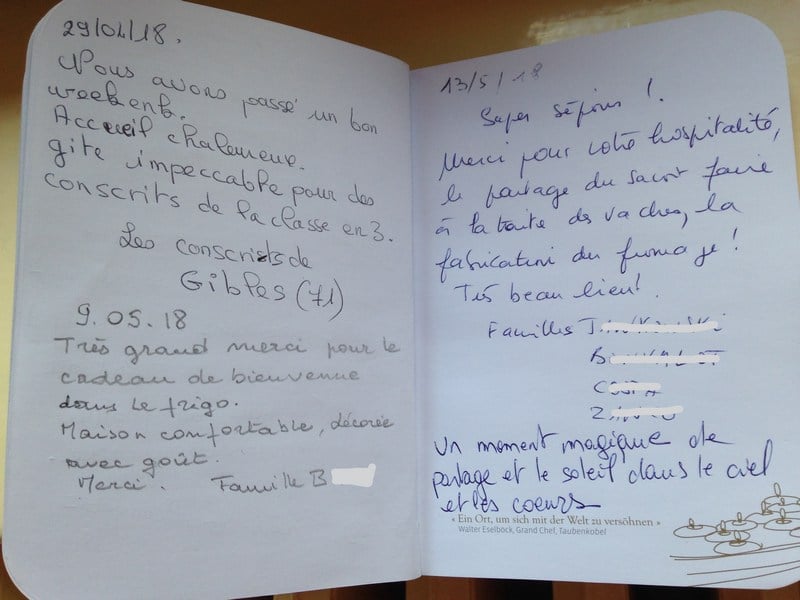 29/04/18.
Nous avons passé un bon
weekenk.
Accueil chaleureux.
gite impeccable pour des
conscrits de la classe en 3.
Les conscrits de
Gibles (71)
9.05.18
Très grand merci pour le
cadeau de bienvenue
dans le frigo.
Maison confortable, décorée
avec goût.
Merci. Famille B
13/5/18
Super séjour !
Merci pour votre hospitalité,
le partage du savoir faire
à la traite des vaches, la
fabrication du fromage !
Très beau lieu !
Familles
Un moment magique de
partage et le soleil dans le ciel
et les coeurs
« Ein Ort, um sich mit der Welt zu versöhnen »
Walter Eselböck, Grand Chef, Taubenkobel